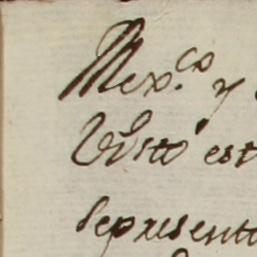 Mex.co y
Visto est
representa